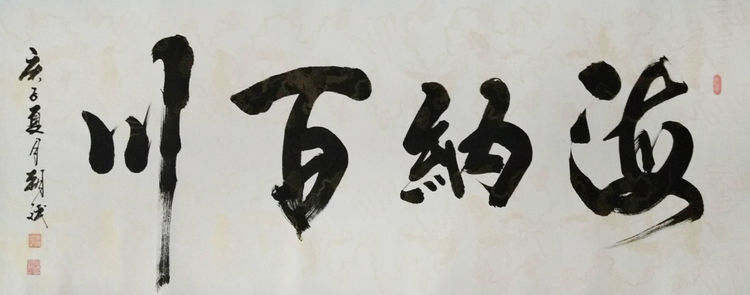 海納百川
庚子夏月朝斌